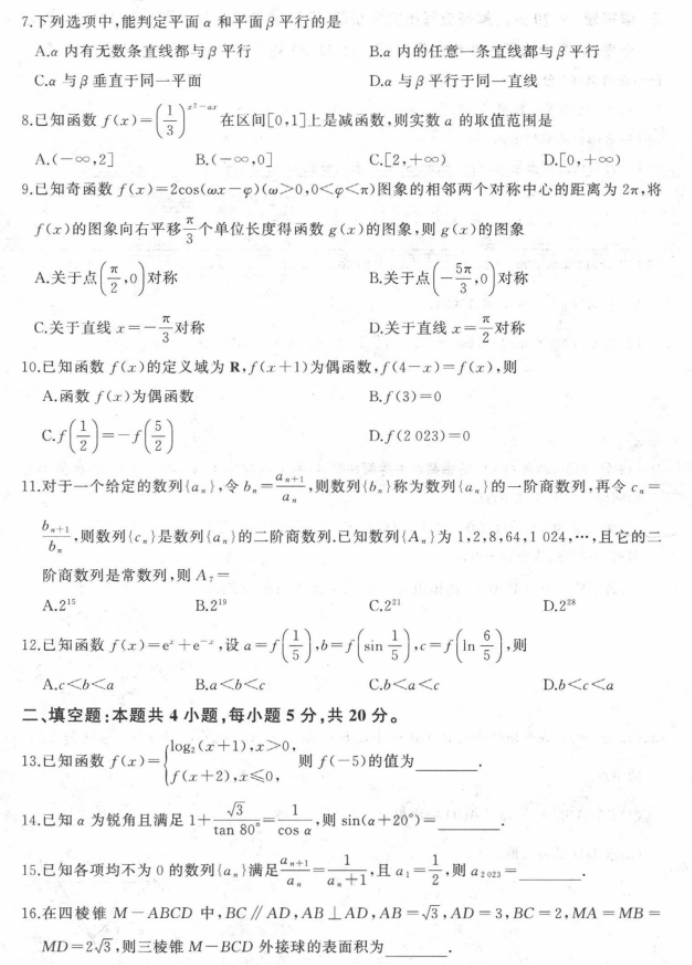 7.下列选项中,能判定平面 α 和平面 β 平行的是
A.α 内有无数条直线都与 β 平行 B.α 内的任意一条直线都与 β 平行
C.α 与 β 垂直于同一平面 D.α 与 β 平行于同一直线
8.已知函数 f(x)=(1/3)^(x²-ax) 在区间[0,1]上是减函数,则实数 a 的取值范围是
A.(-∞,2] B.(-∞,0] C.[2,+∞) D.[0,+∞)
9.已知奇函数 f(x)=2cos(ωx-φ)(ω>0,0<φ<π)图象的相邻两个对称中心的距离为 2π,将
f(x)的图象向右平移π/3个单位长度得函数 g(x)的图象,则 g(x)的图象
A.关于点(π/2,0)对称 B.关于点(-5π/3,0)对称
C.关于直线 x=-π/3对称 D.关于直线 x=π/2对称
10.已知函数 f(x)的定义域为 R,f(x+1)为偶函数,f(4-x)=f(x),则
A.函数 f(x)为偶函数 B.f(3)=0
C.f(1/2)=-f(5/2) D.f(2 023)=0
11.对于一个给定的数列{aₙ},令 bₙ=aₙ₊₁/aₙ,则数列{bₙ}称为数列{aₙ}的一阶商数列,再令 cₙ=
bₙ₊₁/bₙ,则数列{cₙ}是数列{aₙ}的二阶商数列.已知数列{Aₙ}为 1,2,8,64,1 024,…,且它的二
阶商数列是常数列,则 A₇=
A.2¹⁵ B.2¹⁹ C.2²¹ D.2²⁸
12.已知函数 f(x)=eˣ+e⁻ˣ,设 a=f(1/5),b=f(sin 1/5),c=f(ln 6/5),则
A.c<b<a B.a<b<c C.b<a<c D.b<c<a
二、填空题:本题共 4 小题,每小题 5 分,共 20 分。
13.已知函数 f(x)={log₂(x+1),x>0, f(x+2),x≤0, 则 f(-5)的值为______.
14.已知 α 为锐角且满足 1+√3/tan 80°=1/cos α,则 sin(α+20°)=______.
15.已知各项均不为 0 的数列{aₙ}满足aₙ₊₁/aₙ=1/(aₙ+1),且 a₁=1/2,则 a₂₀₂₃=______.
16.在四棱锥 M-ABCD 中,BC∥AD,AB⊥AD,AB=√3,AD=3,BC=2,MA=MB=
MD=2√3,则三棱锥 M-BCD 外接球的表面积为______.